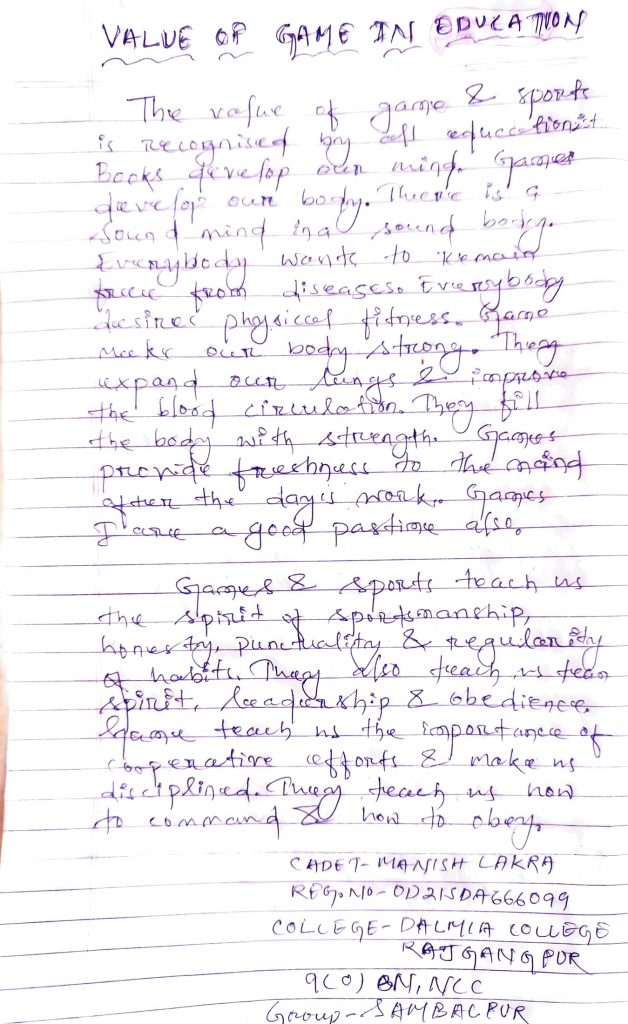 VALUE OF GAME IN EDUCATION
The value of game & sports
is recognised by all educationist
Books develop our mind. Games
develop our body. There is a
sound mind in a sound body.
Everybody wants to remain
free from diseases. Everybody
desires physical fitness. Game
make our body strong. They
expand our lungs & improve
the blood circulation. They fill
the body with strength. Games
provide freshness to the mind
after the day's work. Games
are a good pastime also.
Games & sports teach us
the spirit of sportsmanship,
honesty, punctuality & regularity
of habits. They also teach us team
spirit, leadership & obedience.
Game teach us the importance of
cooperative efforts & make us
disciplined. They teach us how
to command & how to obey.
CADET- MANISH LAKRA
REG.NO- OD21SDA666099
COLLEGE- DALMIA COLLEGE
RAJGANGPUR
9(O) BN, NCC
Group- SAMBALPUR